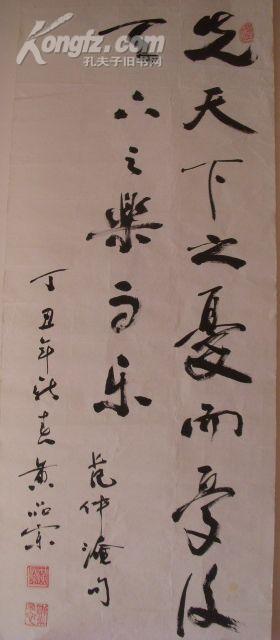 Kongfz.com
孔夫子旧书网
先天下之憂而憂後
天下之樂而乐
范仲淹句
丁丑年 黄